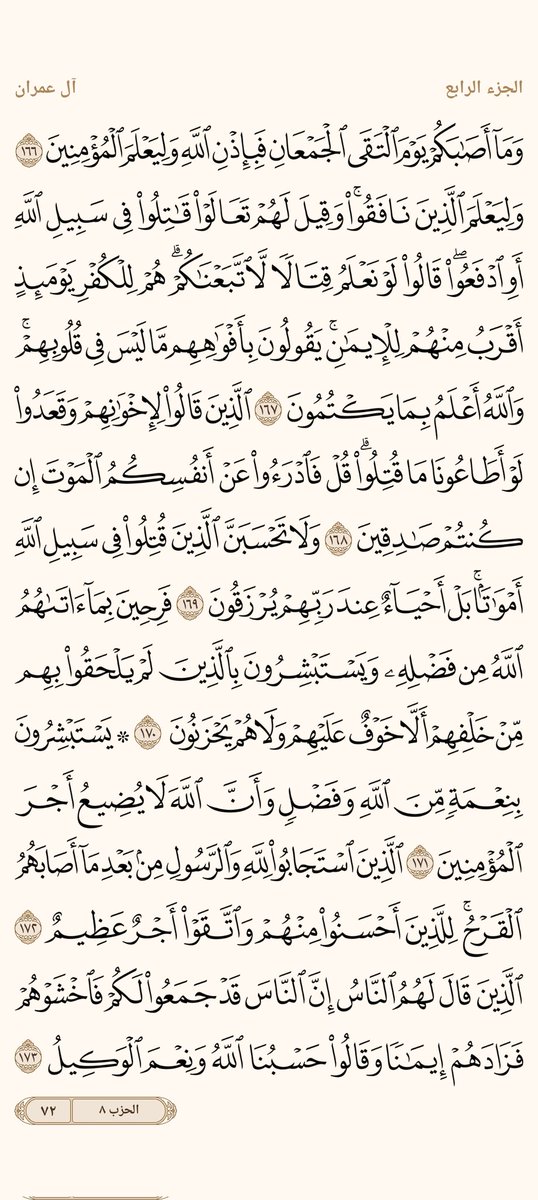 الجزء الرابع آل عمران
وَمَآ أَصَٰبَكُمْ يَوْمَ ٱلْتَقَى ٱلْجَمْعَانِ فَبِإِذْنِ ٱللَّهِ وَلِيَعْلَمَ ٱلْمُؤْمِنِينَ ١٦٦
وَلِيَعْلَمَ ٱلَّذِينَ نَافَقُوا۟ۚ وَقِيلَ لَهُمْ تَعَالَوْا۟ قَٰتِلُوا۟ فِى سَبِيلِ ٱللَّهِ
أَوِ ٱدْفَعُوا۟ۖ قَالُوا۟ لَوْ نَعْلَمُ قِتَالًا لَّٱتَّبَعْنَٰكُمْۗ هُمْ لِلْكُفْرِ يَوْمَئِذٍ
أَقْرَبُ مِنْهُمْ لِلْإِيمَٰنِۚ يَقُولُونَ بِأَفْوَٰهِهِم مَّا لَيْسَ فِى قُلُوبِهِمْۚ
وَٱللَّهُ أَعْلَمُ بِمَا يَكْتُمُونَ ١٦٧ ٱلَّذِينَ قَالُوا۟ لِإِخْوَٰنِهِمْ وَقَعَدُوا۟
لَوْ أَطَاعُونَا مَا قُتِلُوا۟ۗ قُلْ فَٱدْرَءُوا۟ عَنْ أَنفُسِكُمُ ٱلْمَوْتَ إِن
كُنتُمْ صَٰدِقِينَ ١٦٨ وَلَا تَحْسَبَنَّ ٱلَّذِينَ قُتِلُوا۟ فِى سَبِيلِ ٱللَّهِ
أَمْوَٰتًۢاۚ بَلْ أَحْيَآءٌ عِندَ رَبِّهِمْ يُرْزَقُونَ ١٦٩ فَرِحِينَ بِمَآ ءَاتَىٰهُمُ
ٱللَّهُ مِن فَضْلِهِۦ وَيَسْتَبْشِرُونَ بِٱلَّذِينَ لَمْ يَلْحَقُوا۟ بِهِم
مِّنْ خَلْفِهِمْ أَلَّا خَوْفٌ عَلَيْهِمْ وَلَا هُمْ يَحْزَنُونَ ١٧٠ ۞ يَسْتَبْشِرُونَ
بِنِعْمَةٍ مِّنَ ٱللَّهِ وَفَضْلٍ وَأَنَّ ٱللَّهَ لَا يُضِيعُ أَجْرَ
ٱلْمُؤْمِنِينَ ١٧١ ٱلَّذِينَ ٱسْتَجَابُوا۟ لِلَّهِ وَٱلرَّسُولِ مِنۢ بَعْدِ مَآ أَصَابَهُمُ
ٱلْقَرْحُۚ لِلَّذِينَ أَحْسَنُوا۟ مِنْهُمْ وَٱتَّقَوْا۟ أَجْرٌ عَظِيمٌ ١٧٢
ٱلَّذِينَ قَالَ لَهُمُ ٱلنَّاسُ إِنَّ ٱلنَّاسَ قَدْ جَمَعُوا۟ لَكُمْ فَٱخْشَوْهُمْ
فَزَادَهُمْ إِيمَٰنًا وَقَالُوا۟ حَسْبُنَا ٱللَّهُ وَنِعْمَ ٱلْوَكِيلُ ١٧٣
الحزب ٨ ٧٢